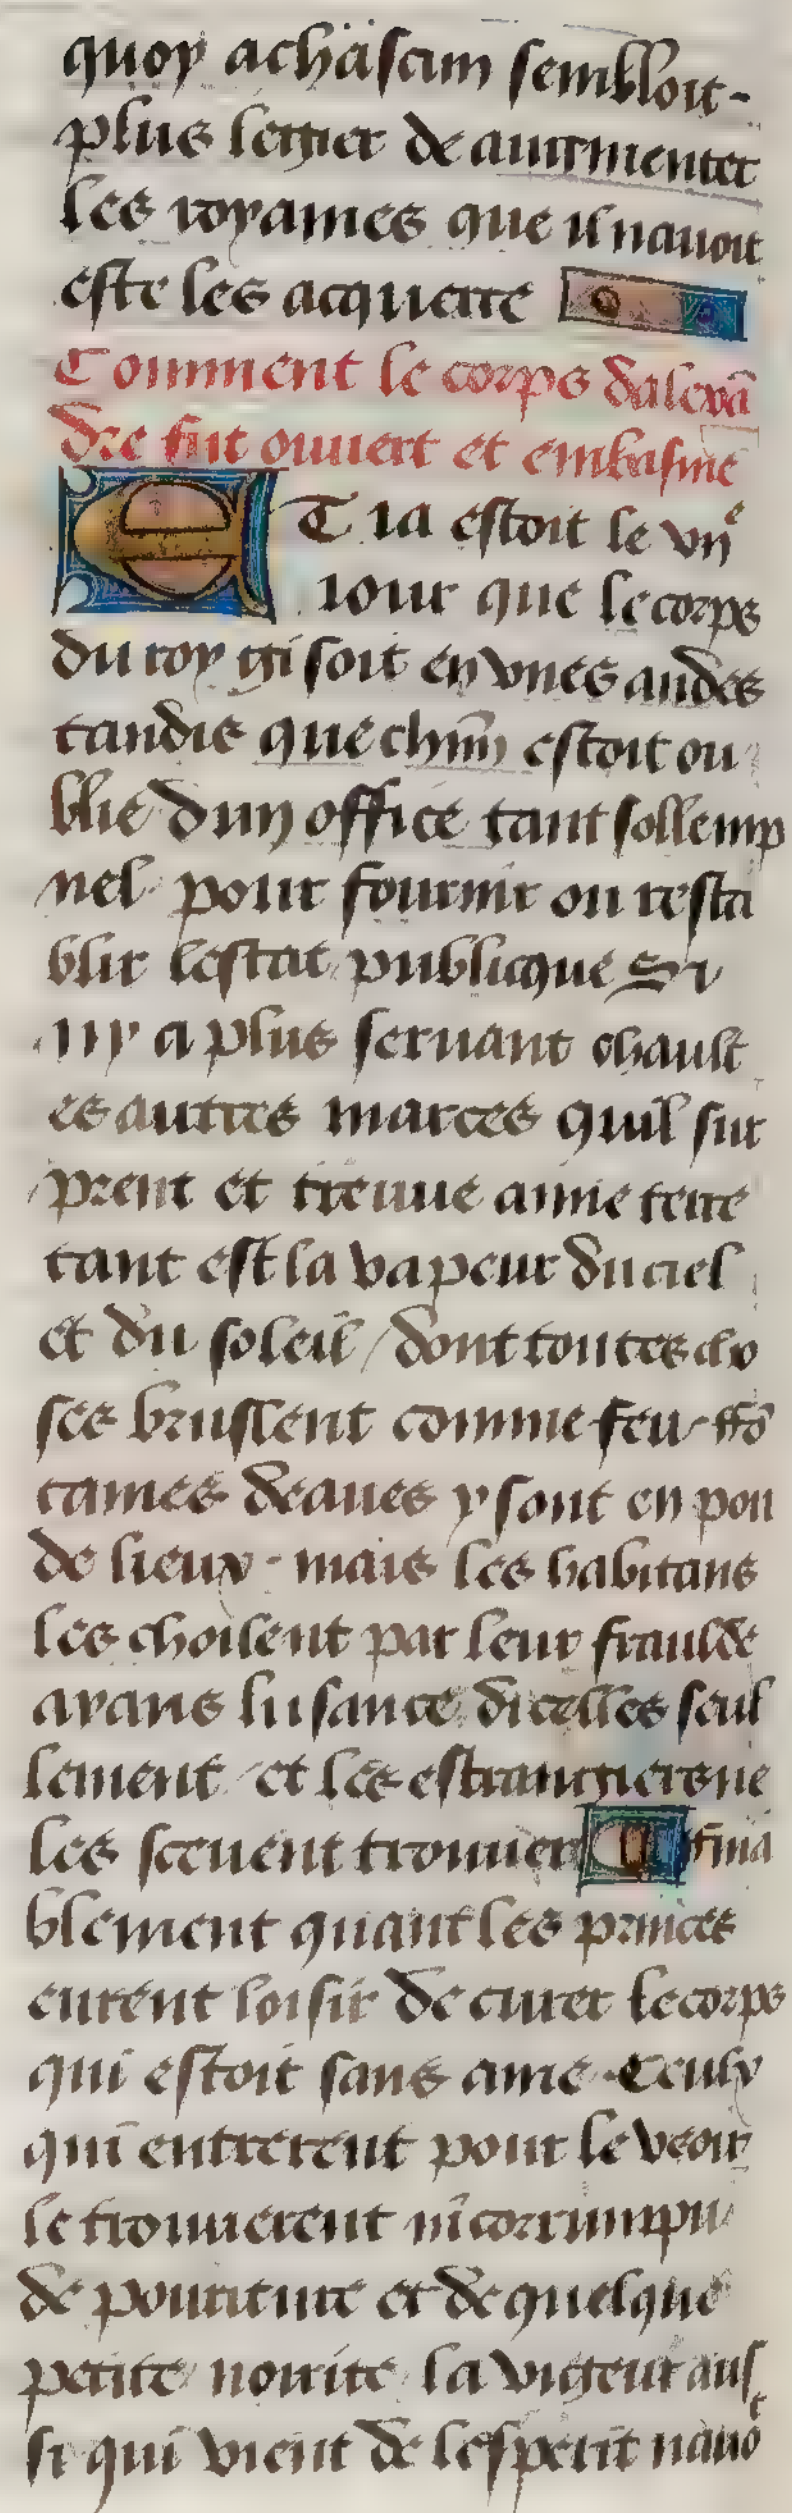 quoy a chascun sembloit -
plus legier de augmenter
les royames que il navoit
este les acquerre
Comment le corps dalexã
dre fut ouvert et embasme
ET ia estoit le vııᵉ
iour que le corps
du roy gisoit en unes andes
tandis que chũn estoit ou
blie dun office tant sollemp
nel pour fournir ou resta
blir lestat publicque Si
ny a plus servant chault
es autres marces quil sur
prent et treuve aime terre
tant est la vapeur du ciel
et du soleil / dont toutes cho
ses bruslent comme feu ffõ
taines deaues y sont en pou
de lieux · mais les habitans
les choilent par leur fraulde
ayans lusance dicelles seul
lement et les estrangiers ne
les scevent trouver fina
blement quant les princes
eurent loisir de curer le corps
qui estoit sans ame · Ceulx
qui entrerent pour le veoir
le trouverent incorrumpu
de pouriture et de quelque
petite noirite la vigeur aus
si qui vient de lesperit navoᵗ